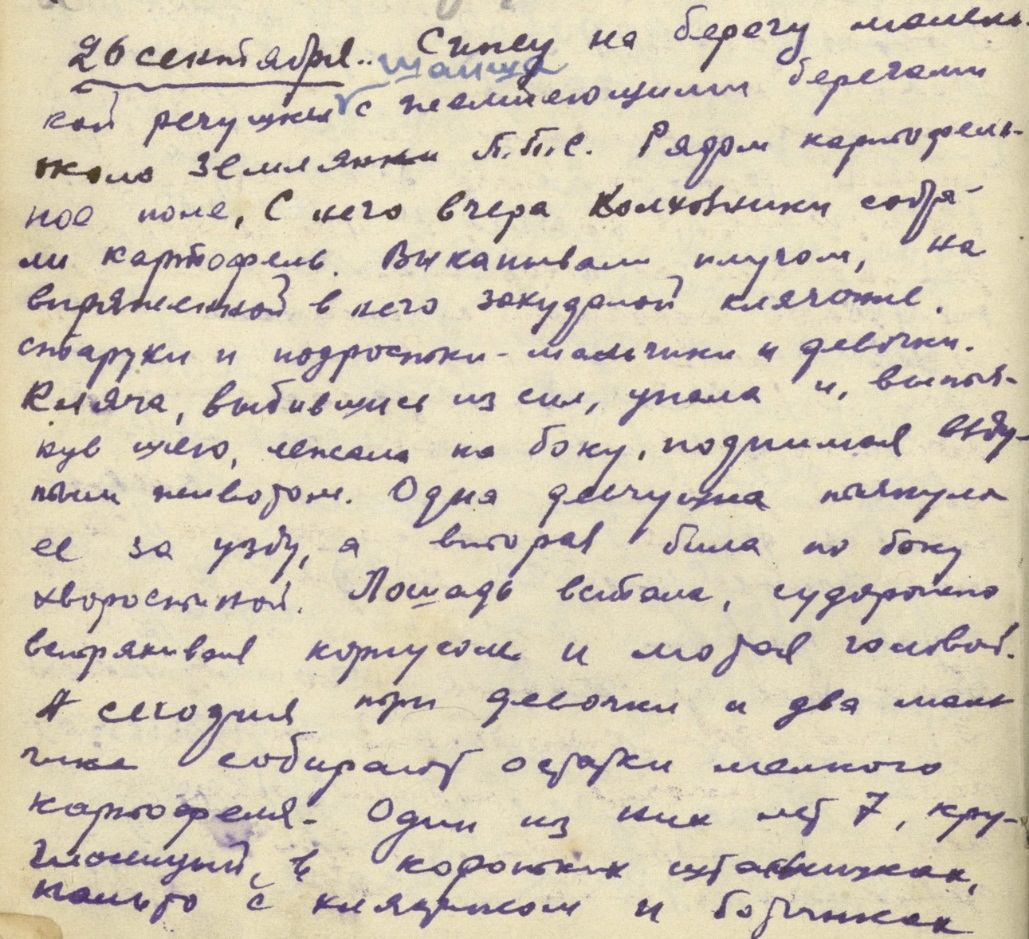 26 сентября. Сижу на берегу малень-
шанца
кой речушки с желтеющими берегами
около землянки П.П.С. Рядом картофель-
ное поле, С него вчера колхозники собра-
ли картофель. Выкапывали плугом, на
впряженной в него захудалой клячонке.
старухи и подростки - мальчики и девочки.
Кляча, выбившись из сил, упала и, вытя-
нув шею, лежала на боку, поднимая взду-
тым животом. Одна девчушка тянула
ее за узду, а вторая била по боку
хворостиной. Лошадь встала, судорожно
встряхивая корпусом и мотая головой.
А сегодня три девочки и два маль
чика собирают остатки мелкого
картофеля. Один из них лет 7, кру-
глолицый, в коротких штанишках,
пальто с хлястиком и ботинках